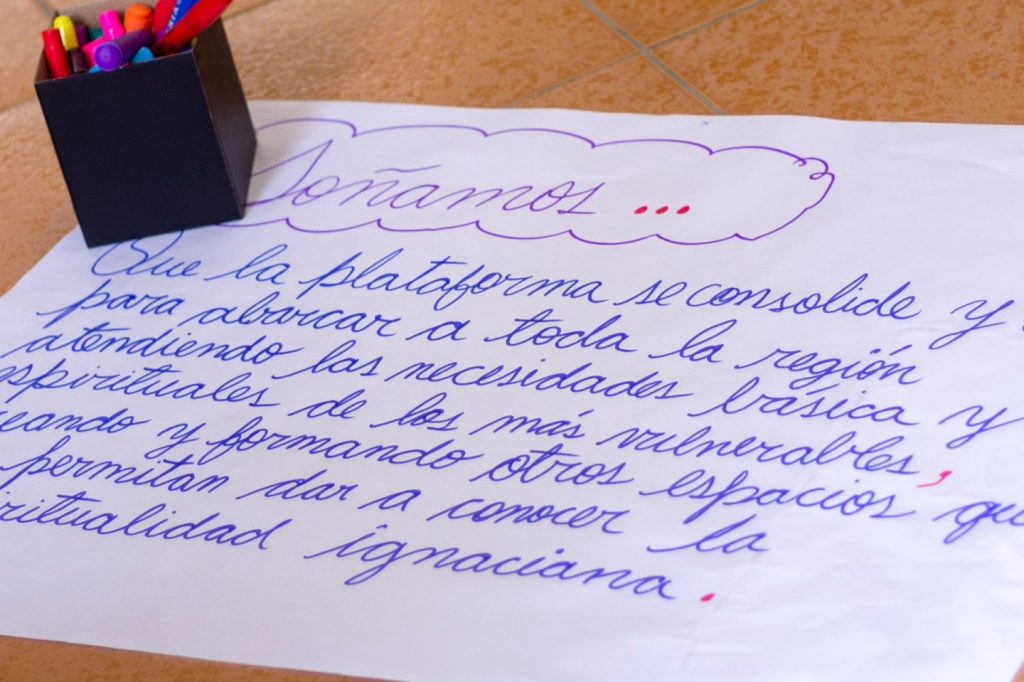 Soñamos ...
Que la plataforma se consolide y
para abarcar a toda la región
atendiendo las necesidades básica y
espirituales de los más vulnerables,
y formando otros espacios
permitan dar a conocer la
ignaciana.